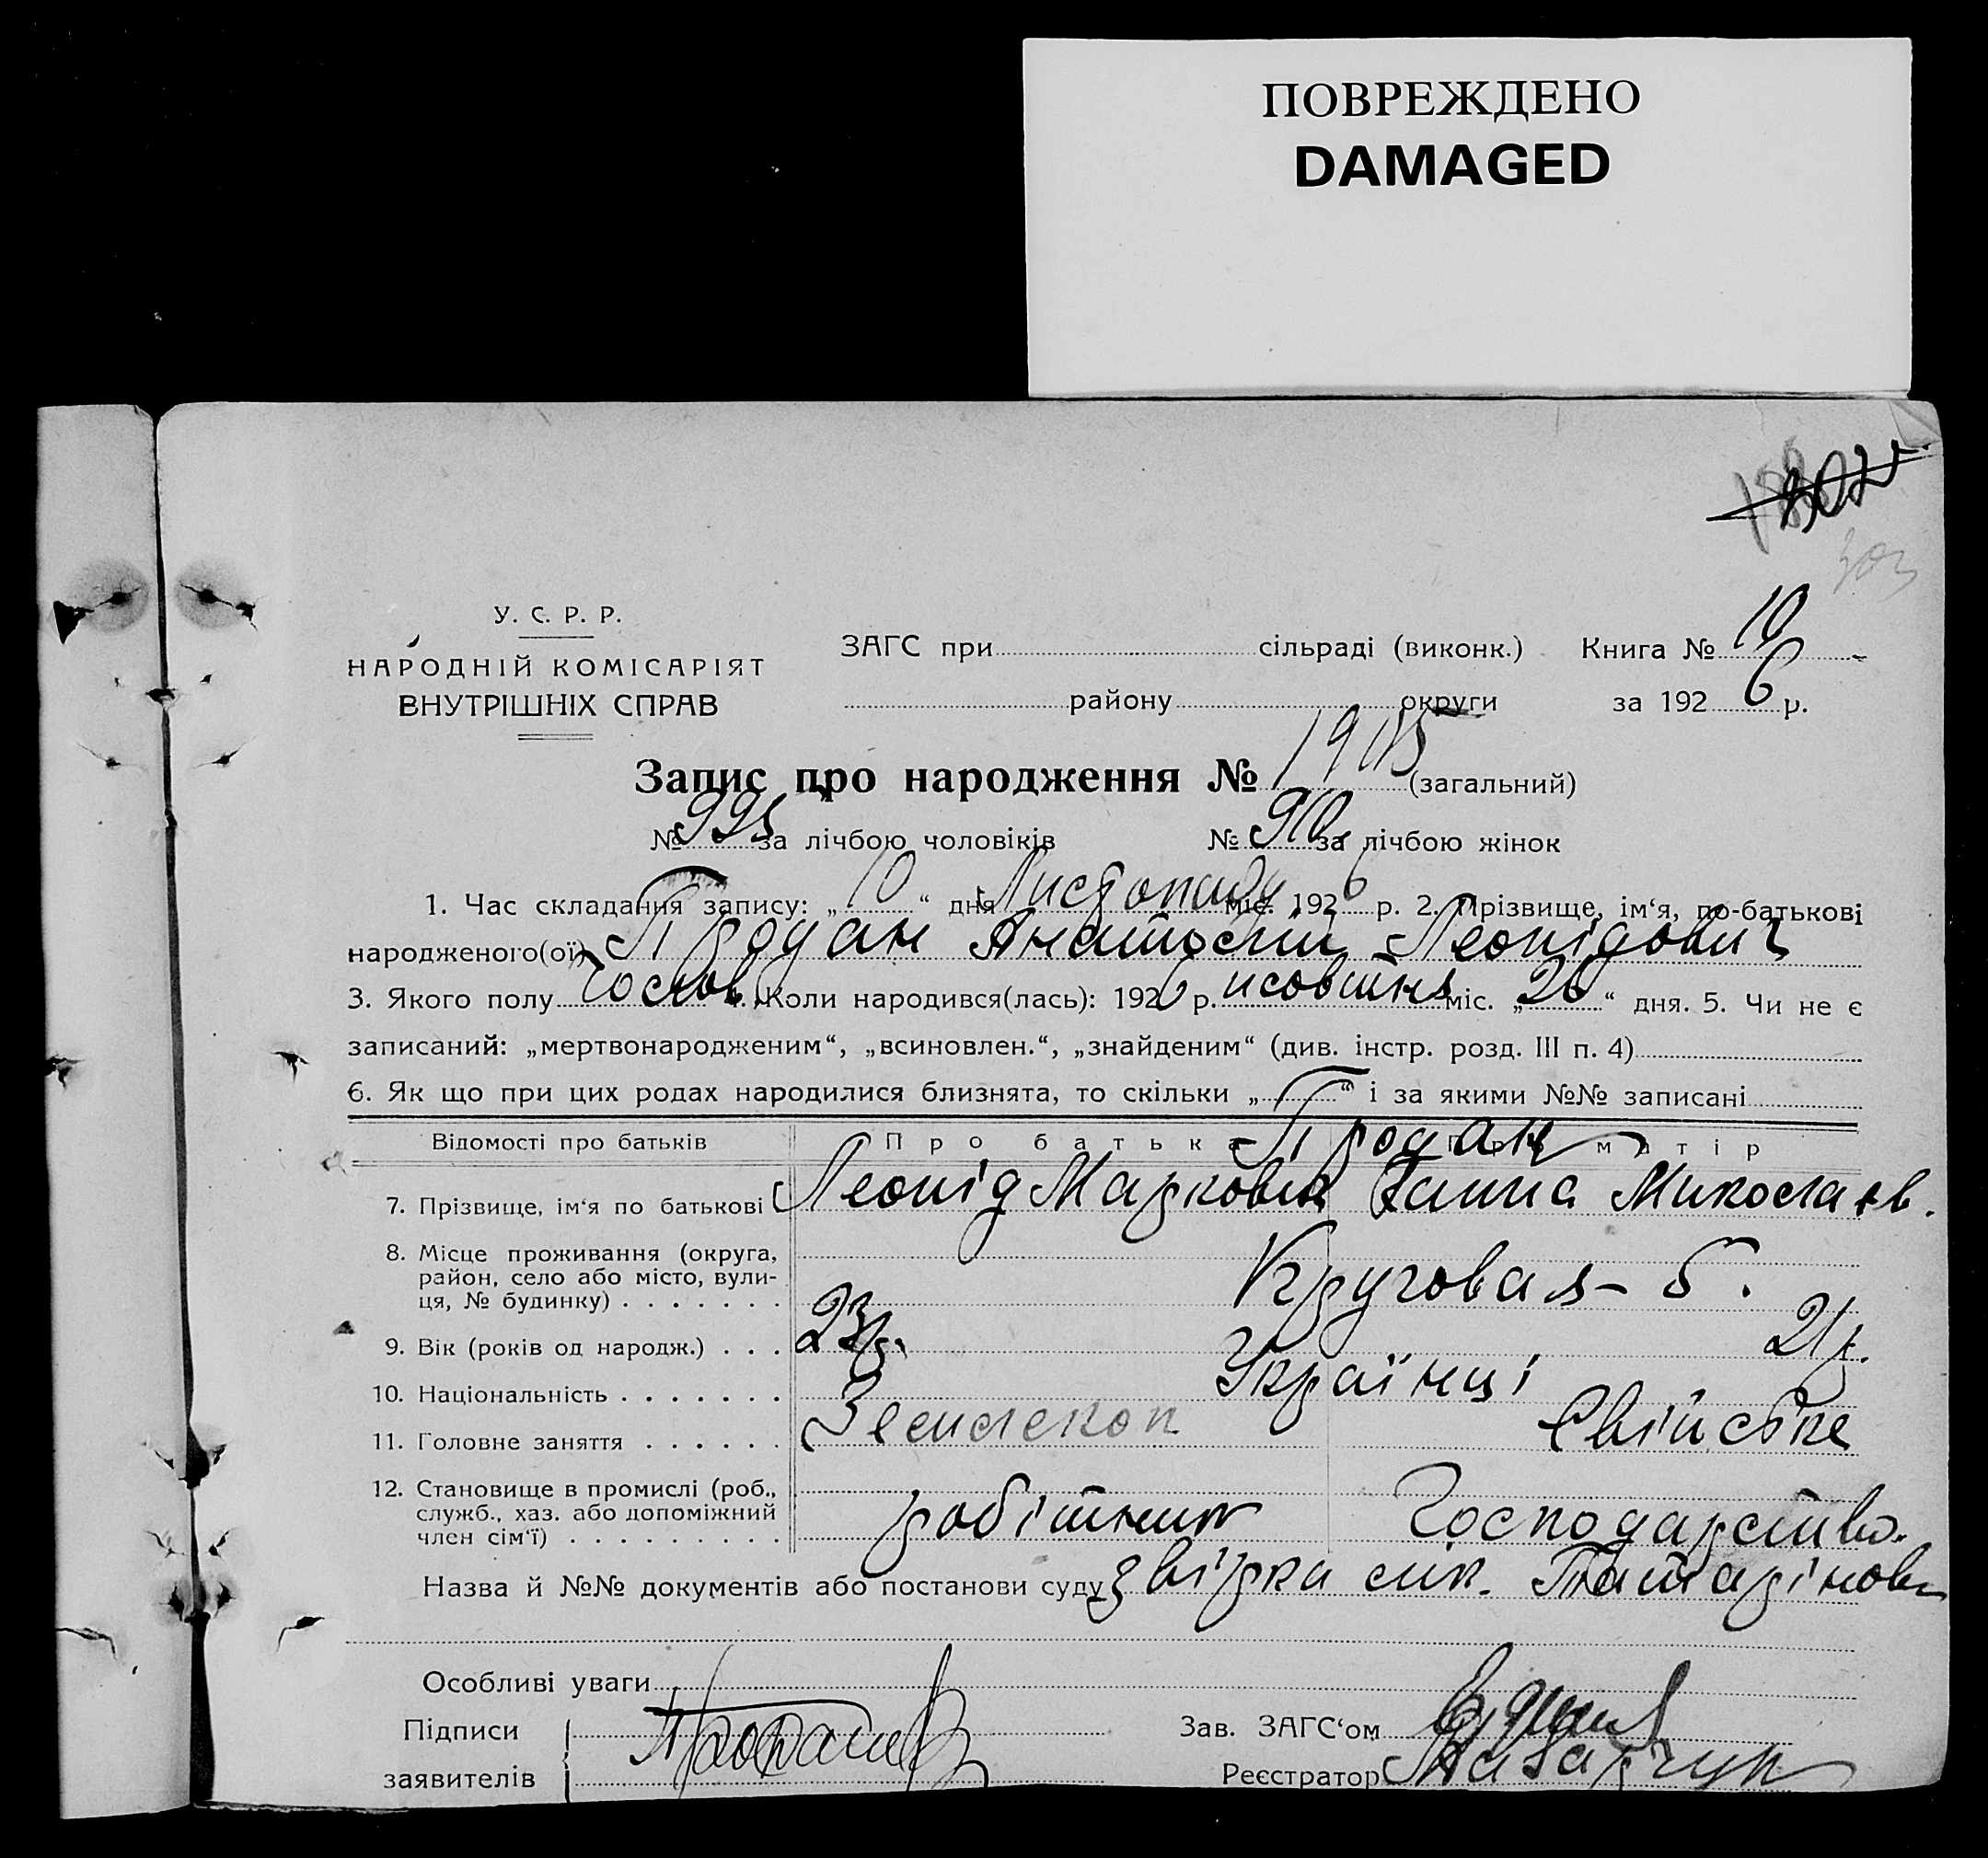 ПОВРЕЖДЕНО
DAMAGED
302
У. С. Р. Р.
НАРОДНІЙ КОМІСАРІЯТ
ВНУТРІШНІХ СПРАВ
ЗАГС при сільраді (виконк.) Книга № 10
району округи за 1926 р.
Запис про народження № 1905 (загальний)
№ 995 за лічбою чоловіків № 910 за лічбою жінок
1. Час складання запису: „10“ дня Листопаду міс. 1926 р. 2. Прізвище, ім‘я, по-батькові
народженого(ої) Продан Анатолій Леонідович
3. Якого полу Чолов. 4. Коли народився(лась): 1926 р. жовтня міс. „26“ дня. 5. Чи не є
записаний: „мертвонародженим“, „всиновлен.“, „знайденим“ (див. інстр. розд. III п. 4)
6. Як що при цих родах народилися близнята, то скільки „ “ і за якими №№ записані
Відомості про батьків Про батька Про матір
Продан
7. Прізвище, ім‘я по батькові Леонід Маркович Ганна Миколаєв.
8. Місце проживання (округа,
район, село або місто, вули-
ця, № будинку) Круговая – 5.
9. Вік (років од народж.) 23 р. 21 р.
10. Національність Українці
11. Головне заняття Землекоп Свійське
12. Становище в промислі (роб.,
служб., хаз. або допоміжний
член сім‘ї) робітник Господарство.
Назва й №№ документів або постанови суду звірка лік. Татарінової
Особливі уваги
Підписи
заявителів
Зав. ЗАГС‘ом
Реєстратор Назарчук